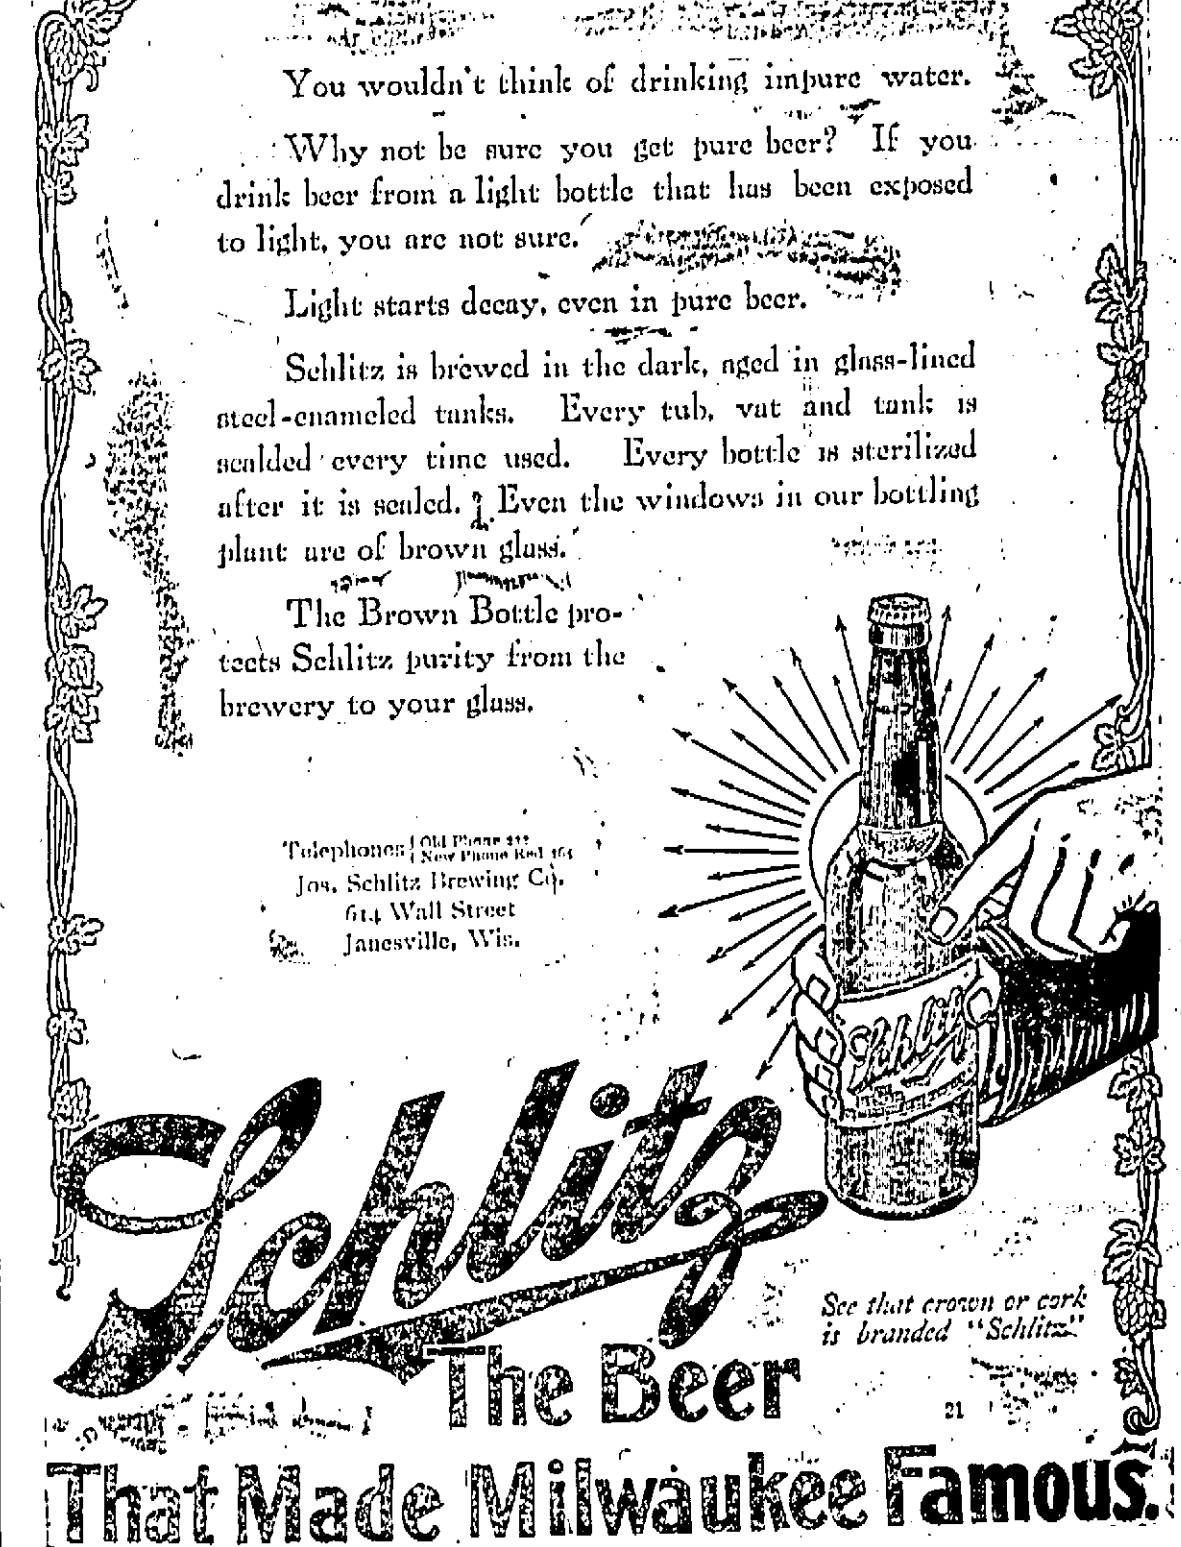 You wouldn't think of drinking impure water.
Why not be sure you get pure beer? If you
drink beer from a light bottle that has been exposed
to light, you are not sure.
Light starts decay, even in pure beer.
Schlitz is brewed in the dark, aged in glass-lined
steel-enameled tanks. Every tub, vat and tank is
scalded every time used. Every bottle is sterilized
after it is sealed. Even the windows in our bottling
plant are of brown glass.
The Brown Bottle pro-
tects Schlitz purity from the
brewery to your glass.
Telephones Old Phone
New Phone Red
Jos. Schlitz Brewing Co.
614 Wall Street
Janesville, Wis.
Schlitz
Schlitz
See that crown or cork
is branded "Schlitz"
The Beer
21
That Made Milwaukee Famous.